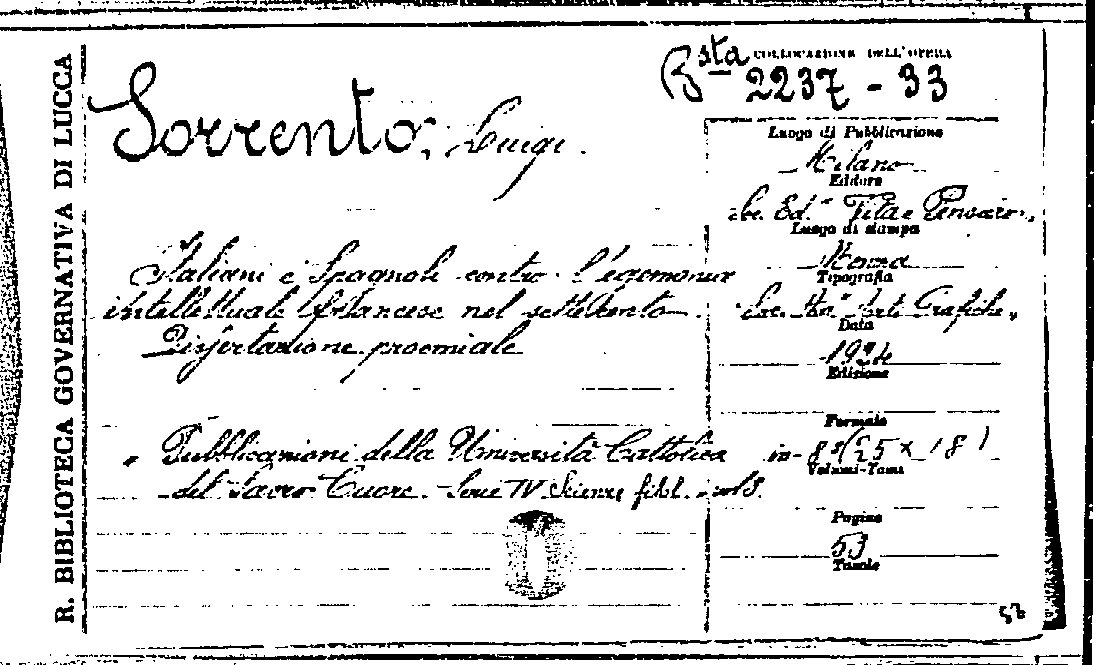 R. BIBLIOTECA GOVERNATIVA DI LUCCA
COLLOCAZIONE DELL'OPERA
Bsta 2237 - 33
Sorrento, Luigi.
Italiani e Spagnoli contro l'egemonia
intellettuale francese nel settecento.
Dissertazione proemiale
Pubblicazioni della Università Cattolica
del Sacro Cuore. - Serie IV Scienze filol. - vol 3.
Luogo di Pubblicazione
Milano
Editore
Soc. Ed. Vita e Pensiero,
Luogo di stampa
Tipografia
Soc. An. Arti Grafiche,
Data
1924
Edizione
Formato
in-8° (25 x 18)
Volumi-Tomi
Pagine
53
Tavole
53